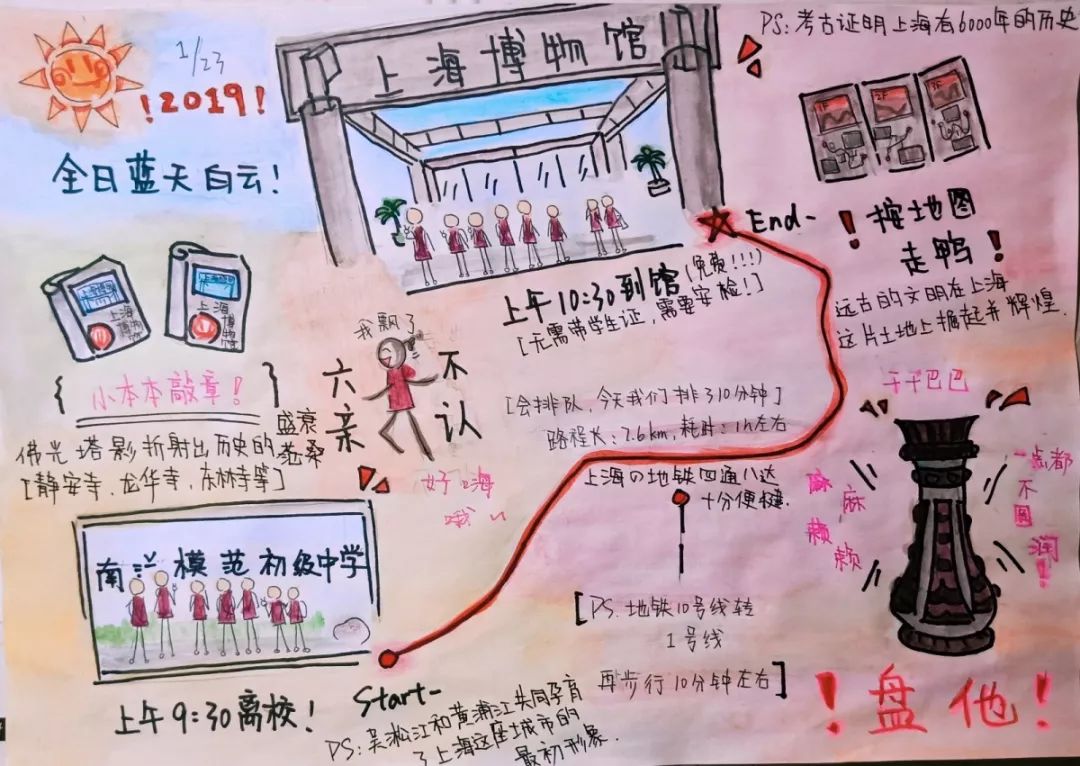 1/23
!2019!
全日蓝天白云!
上海博物馆
PS:考古证明上海有6000年的历史
1F
2F
3F
End-
!按地图
走鸭!
远古的文明在上海
这片土地上掘起并辉煌.
上午10:30到馆(免费!!!)
[无需带学生证,需要安检!]
上海
博物
馆
上海
博物
馆
{小本本敲章!}
佛光塔影折射出历史的
盛衰
沧桑
[静安寺,龙华寺,东林寺等]
我飘了
六亲
不认
好嗨
哦~
[会排队,今天我们排了10分钟]
路程长:7.6km,耗时:1h左右
上海の地铁四通八达
十分便捷.
[PS:地铁10号线转
1号线
再步行10分钟左右]
干干巴巴
麻麻
赖赖
一点都
不圆
润!
!盘他!
南洋模范初级中学
上午9:30离校!
Start-
PS:吴淞江和黄浦江共同孕育
了上海这座城市的
最初形象.